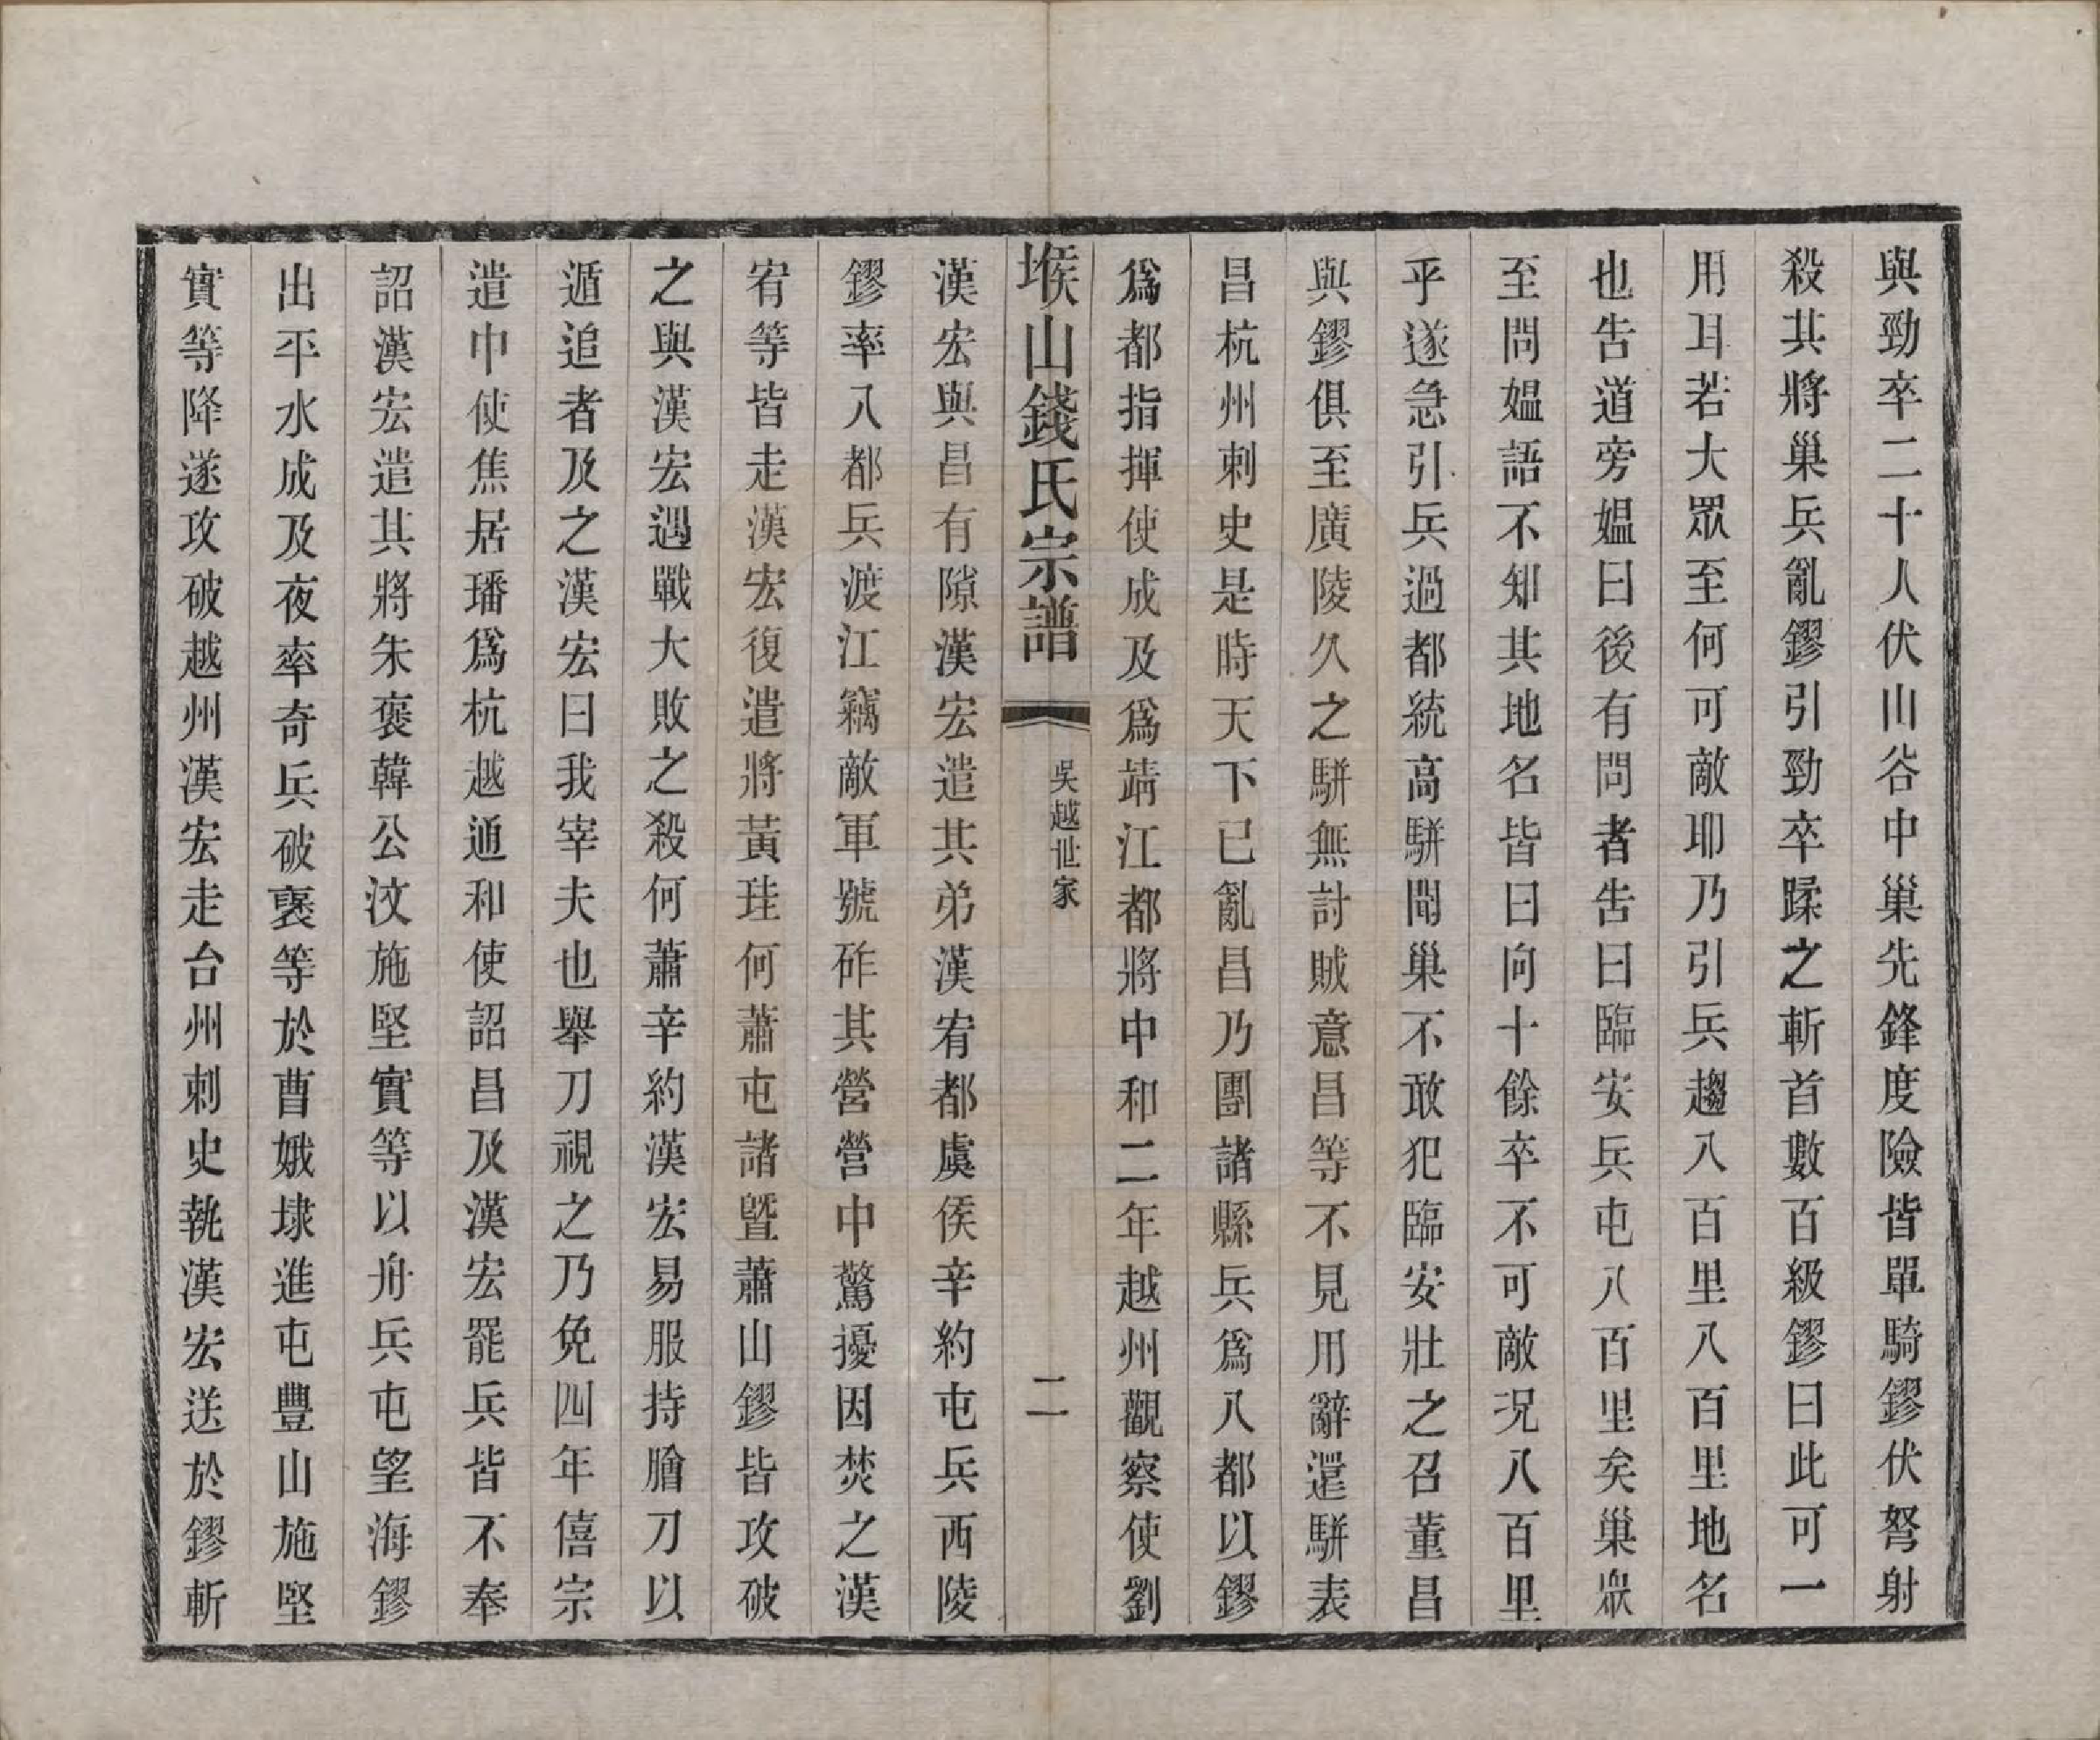 與勁卒二十人伏山谷中巢先鋒度險皆單騎鏐伏弩射
殺其將巢兵亂鏐引勁卒蹂之斬首數百級鏐曰此可一
用耳若大眾至何可敵耶乃引兵趨八百里八百里地名
也告道旁媼曰後有問者告曰臨安兵屯八百里矣巢眾
至問媼語不知其地名皆曰向十餘卒不可敵况八百里
乎遂急引兵過都統高駢聞巢不敢犯臨安壯之召董昌
與鏐俱至廣陵久之駢無討賊意昌等不見用辭還駢表
昌杭州刺史是時天下已亂昌乃團諸縣兵爲八都以鏐
爲都指揮使成及爲靖江都將中和二年越州觀察使劉
堠山錢氏宗譜 吳越世家 二
漢宏與昌有隙漢宏遣其弟漢宥都虞侯辛約屯兵西陵
鏐率八都兵渡江竊敵軍號砟其營營中驚擾因焚之漢
宥等皆走漢宏復遣將黃珪何蕭屯諸暨蕭山鏐皆攻破
之與漢宏遇戰大敗之殺何蕭辛約漢宏易服持膾刀以
遁追者及之漢宏曰我宰夫也舉刀視之乃免四年僖宗
遣中使焦居璠爲杭越通和使詔昌及漢宏罷兵皆不奉
詔漢宏遣其將朱褒韓公汶施堅實等以舟兵屯望海鏐
出平水成及夜率奇兵破褒等於曹娥埭進屯豐山施堅
實等降遂攻破越州漢宏走台州刺史執漢宏送於鏐斬